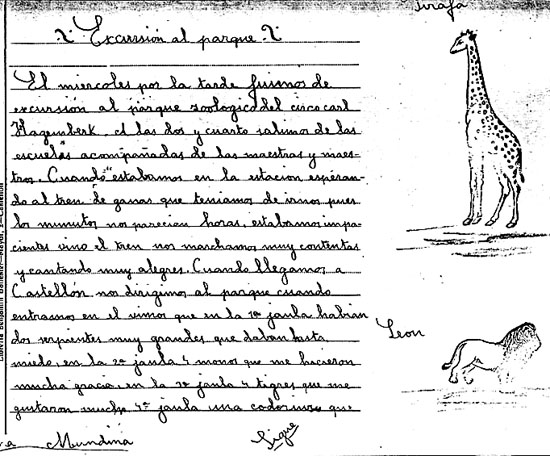 Jirafa
Excursión al parque
El miercoles por la tarde fuimos de
excursión al parque zoologico del circo carl
Hagembert. A las dos y cuarto salimos de las
escuelas acompañadas de las maestras y maes-
tros. Cuando estabamos en la estacion esperan-
do al tren de ganas que teniamos de irnos pues
los minutos nos parecian horas, estabamos impa-
cientes vino el tren nos marchamos muy contentas
y cantando muy alegres. Cuando llegamos a
Castellón nos dirigimos al parque cuando
entramos en el vimos que en la 1ª jaula habian
dos serpientes muy grandes que daban hasta
miedo, en la 2ª jaula 4 monos que me hicieron
mucha gracia, en la 3ª jaula 4 tigres que me
gustaron mucho 4ª jaula una que
Leon
Mundina
Sigue